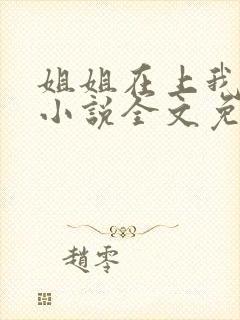 姐姐在上我
小說全文免
趙零